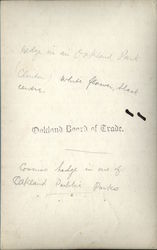 Hedge in an Oakland Park
White flower, black
centre
Oakland Board of Trade.
Cosmos hedge in one of
Oakland Public Parks